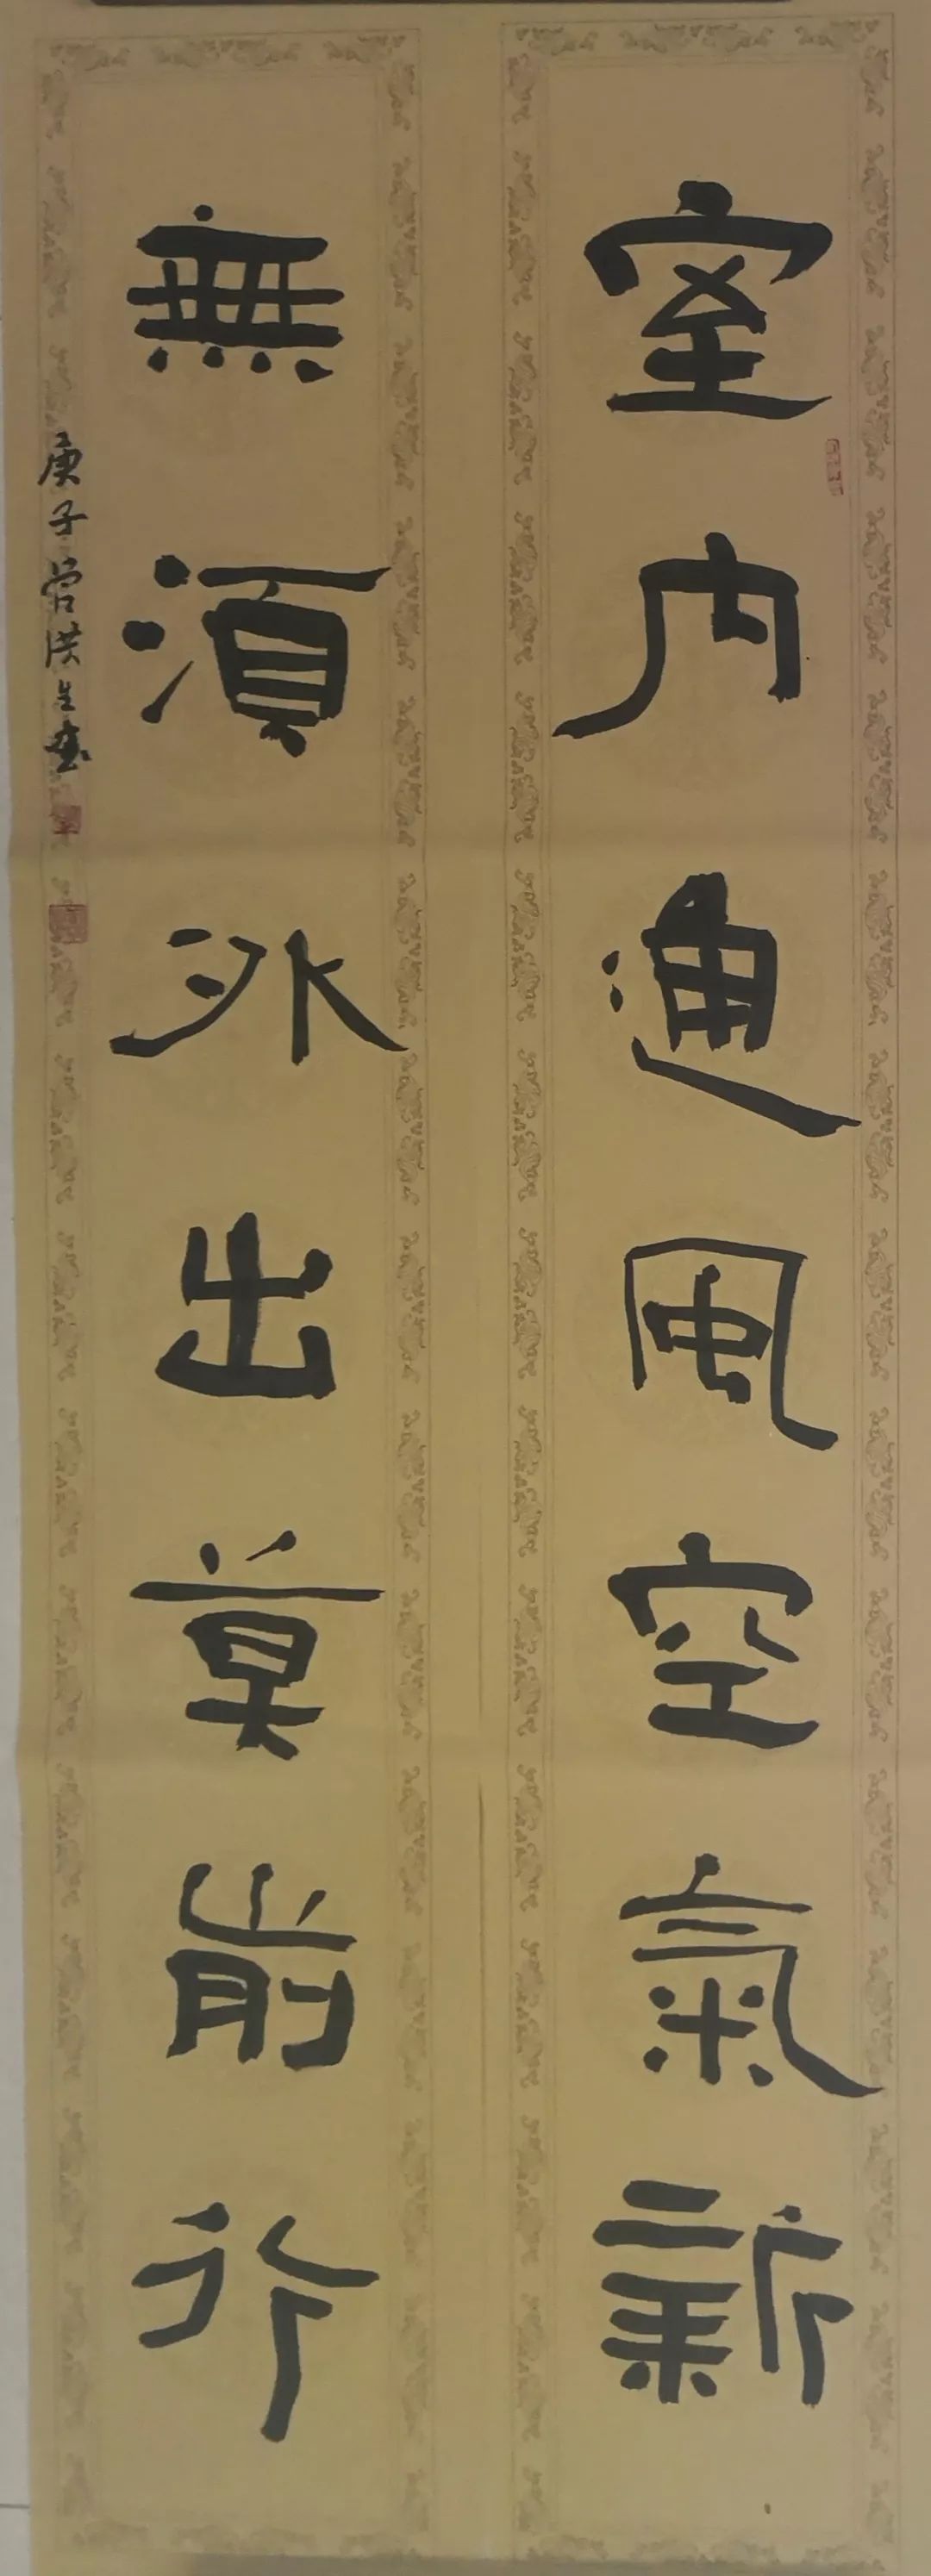 室内通風空氣新
無須外出莫前行
庚子管洪生書